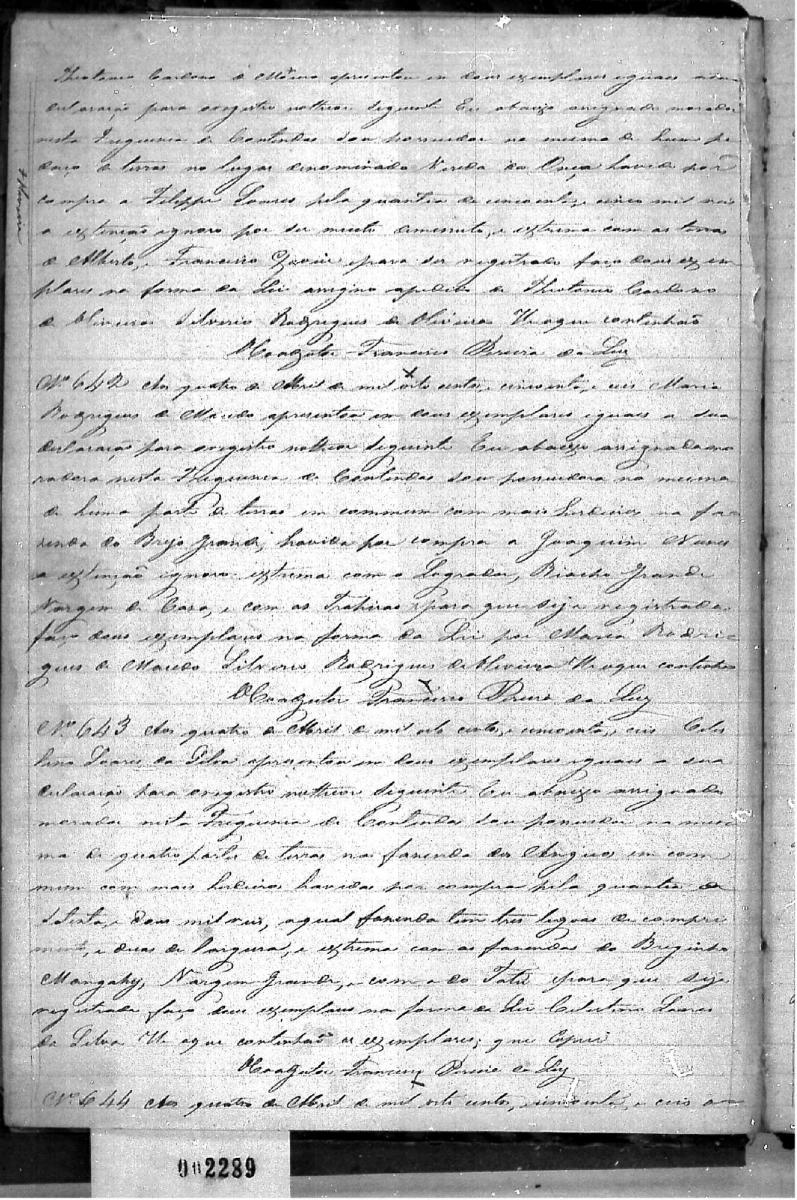 Theotonio Cardoso de Oliveira apresentou em dous exemplares iguaes a sua
declaração para oregistro notheor seguinte Eu abaixo assignado morador
nesta Freguesia de Contendas sou possuidor na mesma de hum pe
daço de terras no lugar denominado Vereda da Onça havida por
compra a Filippe Soares pela quantia de cincoenta, e cinco mil reis
a extenção ignoro por ser muito diminuta, e extrema com as terras
de Alberto, e Francisco Xavier epara ser registrado faço dous exem
plares na forma da Lei assigno apedido de Theotonio Cardoso
de Oliveira Silverio Rodrigues de Oliveira He oque continhão
OCoadjutor Francisco Pereira da Luz
Nº 642 Aos quatro de Abril de mil oito centos, e cincoenta, e seis Maria
Rodrigues de Macedo apresentou em dous exemplares iguaes a sua
declaração para oregistro notheor seguinte Eu abaixo assignada mo
radora nesta Freguesia de Contendas sou possuidora na mesma
de huma parte de terras em commum com mais herdeiros na fa
zenda do Brejo Grande, havida por compra a Joaquim Nunes
a extenção ignoro extrema com o Logrador, Riacho Grande
Vargem da Casa, e com as Trahiras epara que seja registrada
faço dous exemplares na forma da Lei por Maria Rodri
gues de Macedo Silverio Rodrigues de Oliveira He oque continhão
OCoadjutor Francisco Pereira da Luz
Nº 643 Aos quatro de Abril de mil oito centos, e cincoenta, e seis Celes
tino Soares da Silva apresentou em dous exemplares iguaes a sua
declaração para oregistro notheor seguinte Eu abaixo assignado
morador nesta Freguesia de Contendas sou possuidor na mes
ma de quatro partes de terras na fazenda dos Angicos em com
mum com mais herdeiros havidas por compra pela quantia de
Setenta, e dous mil reis, aqual fazenda tem tres legoas de compri
mento, e duas de largura, e extrema com as fazendas do Brejinho
Mangahy, Vargem Grande, e com a do Tatú epara que seja
registrada faço dous exemplares na forma da Lei Celestino Soares
da Silva He oque continhão os exemplares; que Copiei
OCoadjutor Francisco Pereira da Luz
Nº 644 Aos quatro de Abril de mil oito centos, e cincoenta, e seis
002289